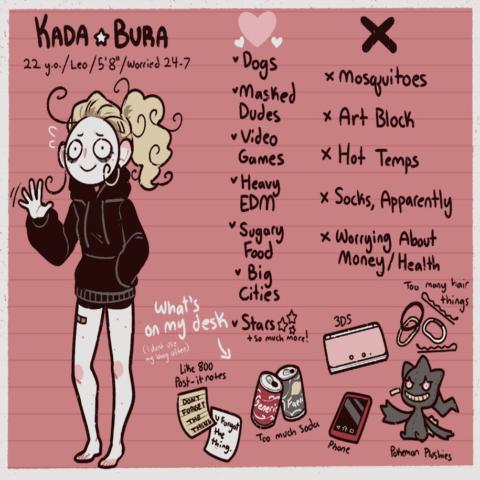 KADA ☆ BURA
22 y.o./Leo/5'8"/Worried 24-7
Dogs
Masked
Dudes
Video
Games
Heavy
EDM
Sugary
Food
Big
Cities
Stars
+ so much more!
x Mosquitoes
x Art Block
x Hot Temps
x Socks, Apparently
x Worrying About
Money/Health
What's
on my desk
(I dont use
my bag often)
Like 800
Post-it notes
DON'T
FORGET
THE
THING
U forgot
the
thing.
Generic
Too much Soda
3DS
Phone
Too many hair
things
Pokemon Plushies